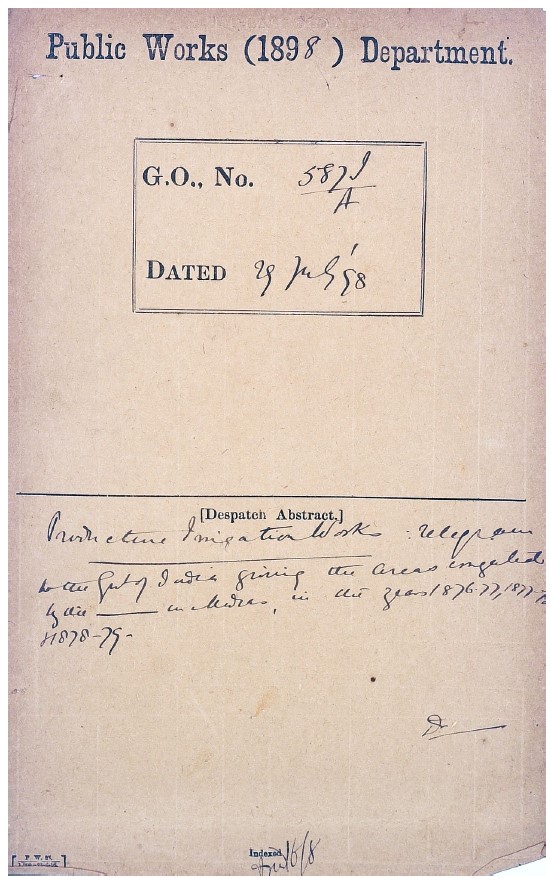 Public Works (1898) Department.
G.O., No. 587 I
A
DATED 29 July '98
[Despatch Abstract.]
Productive Irrigation Works : telegram
to the Govt of India giving the areas irrigated
by the —— in Madras, in the years 1876-77, 1877-78
& 1878-79-
Indexed
16/8